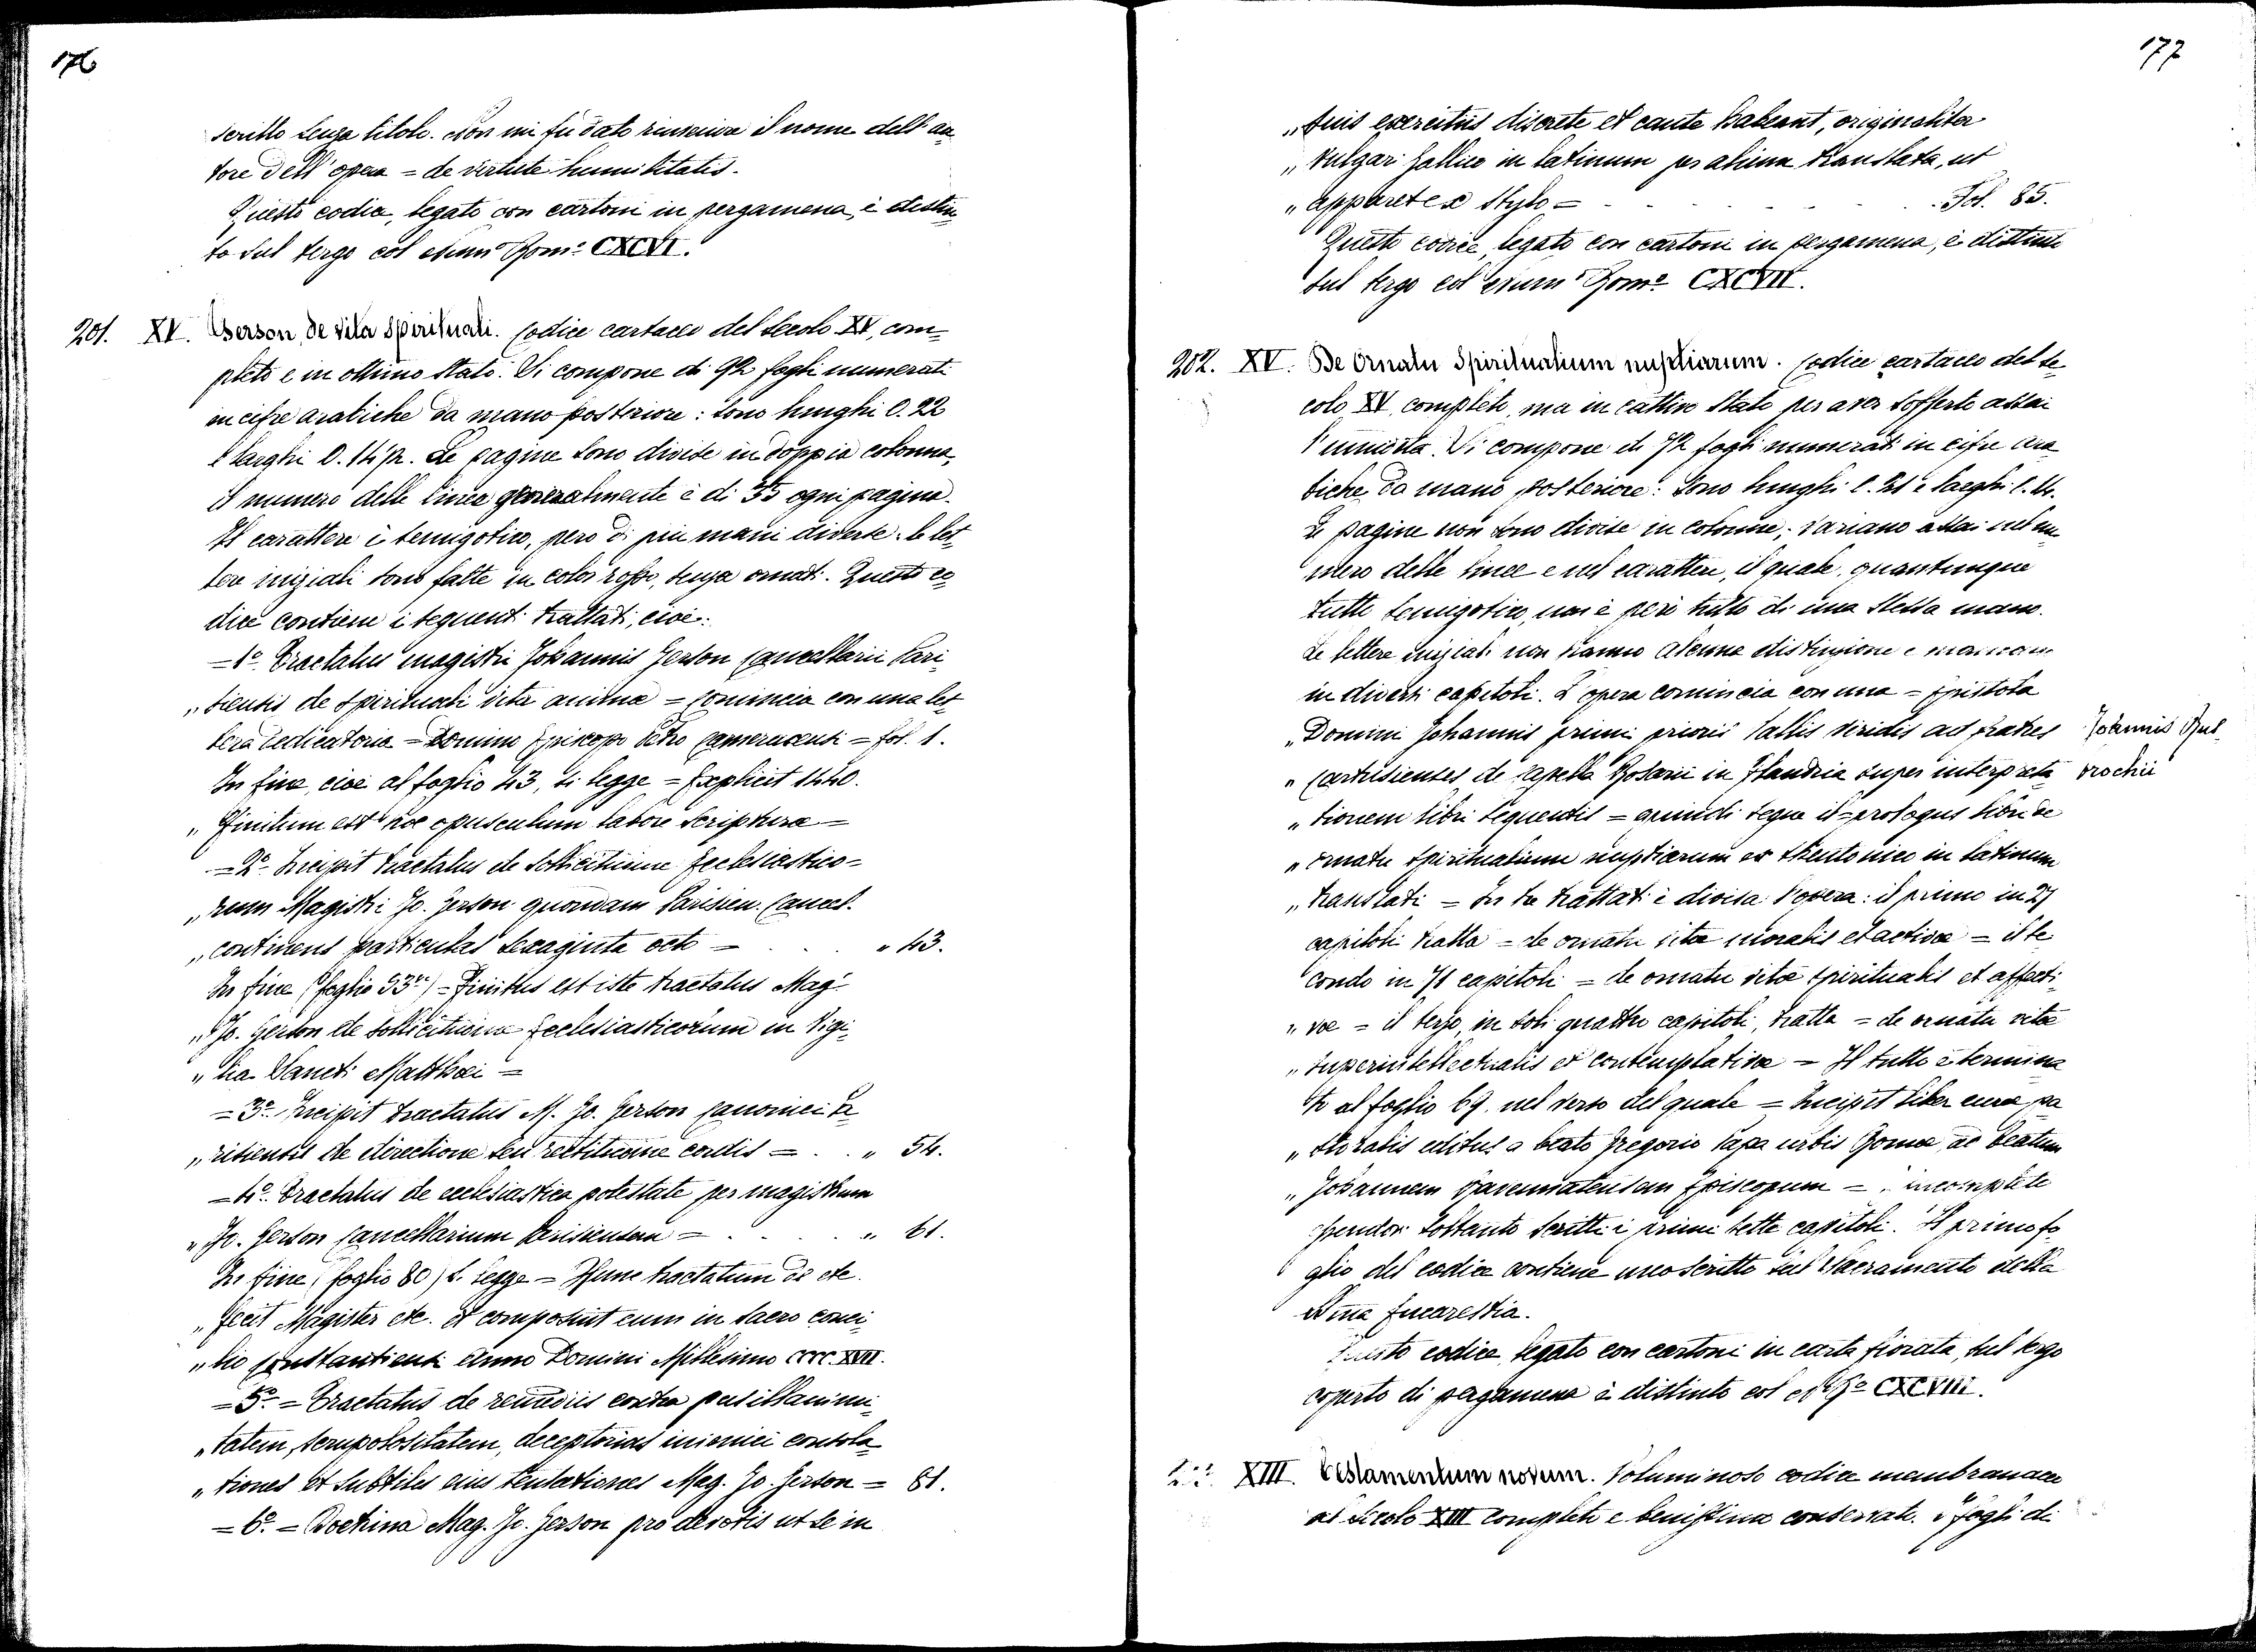 176
scritto senza titolo. Non mi fu dato rinvenire il nome dell'au-
tore dell'opera = de virtute humilitatis.
Questo codice, legato con cartoni in pergamena, è distin-
to sul tergo col Num° Rom° CXCVI.
201. XV. Gerson, de vita Spirituali. Codice cartaceo del Secolo XV, com-
pleto e in ottimo stato. Si compone di 92 fogli numerati
in cifre arabiche da mano posteriore: sono lunghi 0.22
e larghi 0.14½. Le pagine sono divise in doppia colonna,
il numero delle linee generalmente è di 35 ogni pagina.
Il carattere è semigotico, pero di più mani diverse: le let-
tere iniziali sono fatte in color rosso, senza ornati. Questo co-
dice contiene i seguenti trattati, cioè:
=1° Tractatus magistri Johannis Gerson Cancellarii Pari-
„siensis de Spirituali vita animæ = Comincia con una let-
tera dedicatoria = Domino Episcopo Petro Cameracensi = fol. 1.
In fine, cioè al foglio 43, si legge = Explicit 1440.
„Finitum est hoc opusculum labore scripturæ =
=2° Incipit tractatus de Sollicitudine Ecclesiastico-
„rum Magistri Jo. Gerson quondam Parisien. Cancel.
„continens particulas sexaginta octo = „ 43.
In fine (foglio 53.) = Finitus est iste tractatus Mag.
„Jo. Gerson de sollicitudine Ecclesiasticorum in Vigi-
„lia Sancti Matthæi =
=3° Incipit tractatus M. Jo. Gerson Canonici Pa-
„risiensis de directione seu rectitudine cordis = „ 54.
=4° Tractatus de ecclesiastica potestate per magistrum
„Jo. Gerson Cancellarium Parisiensem = „ 61.
In fine (foglio 80) si legge = Hunc tractatum etc.
„fecit Magister etc. et composuit eum in Sacro conci-
„lio Constantiensi Anno Domini Millesimo CCCC.XVII.
=5° = Tractatus de remediis contra pusillanimi-
„tatem, scrupolositatem, deceptorias inimici consola-
„tiones et subtiles eius tentationes Mag. Jo. Gerson = 81.
=6° = Doctrina Mag. Jo. Gerson pro devotis ut se in
177
„suis exercitiis discrete et caute habeant, originaliter
„vulgari Gallico in latinum per alium translata, ut
„apparet ex stylo = Fol. 85.
Questo codice, legato con cartoni in pergamena, è distinto
sul tergo col Num° Rom° CXCVII.
202. XV. De Ornatu Spiritualium nuptiarum. Codice cartaceo del se-
colo XV, completo, ma in cattivo stato per aver sofferto assai
l'umidità. Si compone di 72 fogli numerati in cifre ara-
biche da mano posteriore: sono lunghi 0.21 e larghi 0.14.
Le pagine non sono divise in colonne; variano assai nel nu-
mero delle linee e nel carattere, il quale, quantunque
tutto semigotico, non è però tutto di una stessa mano.
Le lettere iniziali non hanno alcuna distinzione e mancano
in diversi capitoli. L'opera comincia con una = Epistola
„Domini Johannis primi prioris Vallis viridis ad fratres
Johannis Rus-
„Cartusienses de Capella Rosarii in Flandria super interpreta-
brochii
„tionem libri sequentis = quindi segue il = prologus libri de
„ornatu spiritualium nuptiarum ex theutonico in latinum
„translati = In tre trattati è divisa l'opera: il primo in 27
capitoli tratta = de ornatu vitæ moralis et activæ = il se-
condo in 71 capitoli = de ornatu vitæ spiritualis et affecti-
„væ = il terzo, in soli quattro capitoli, tratta = de ornatu vitæ
„superintellectualis et contemplativæ = Il tutto è termina-
to al foglio 69, nel verso del quale = Incipit liber curæ pa-
„storalis editus a beato Gregorio Papa urbis Romæ, ad beatum
„Johannem Ravennatensem Episcopum = è incompleto
essendovi soltanto scritti i primi sette capitoli. Il primo fo-
glio del codice contiene uno scritto sul Sacramento della
SS.ma Eucarestia.
Questo codice legato con cartoni in carta fiorata, sul tergo
coperto di pergamena è distinto col N° R° CXCVIII.
XIII. Testamentum novum. Voluminoso codice membranaceo
del Secolo XIII completo e benissimo conservato. I fogli di